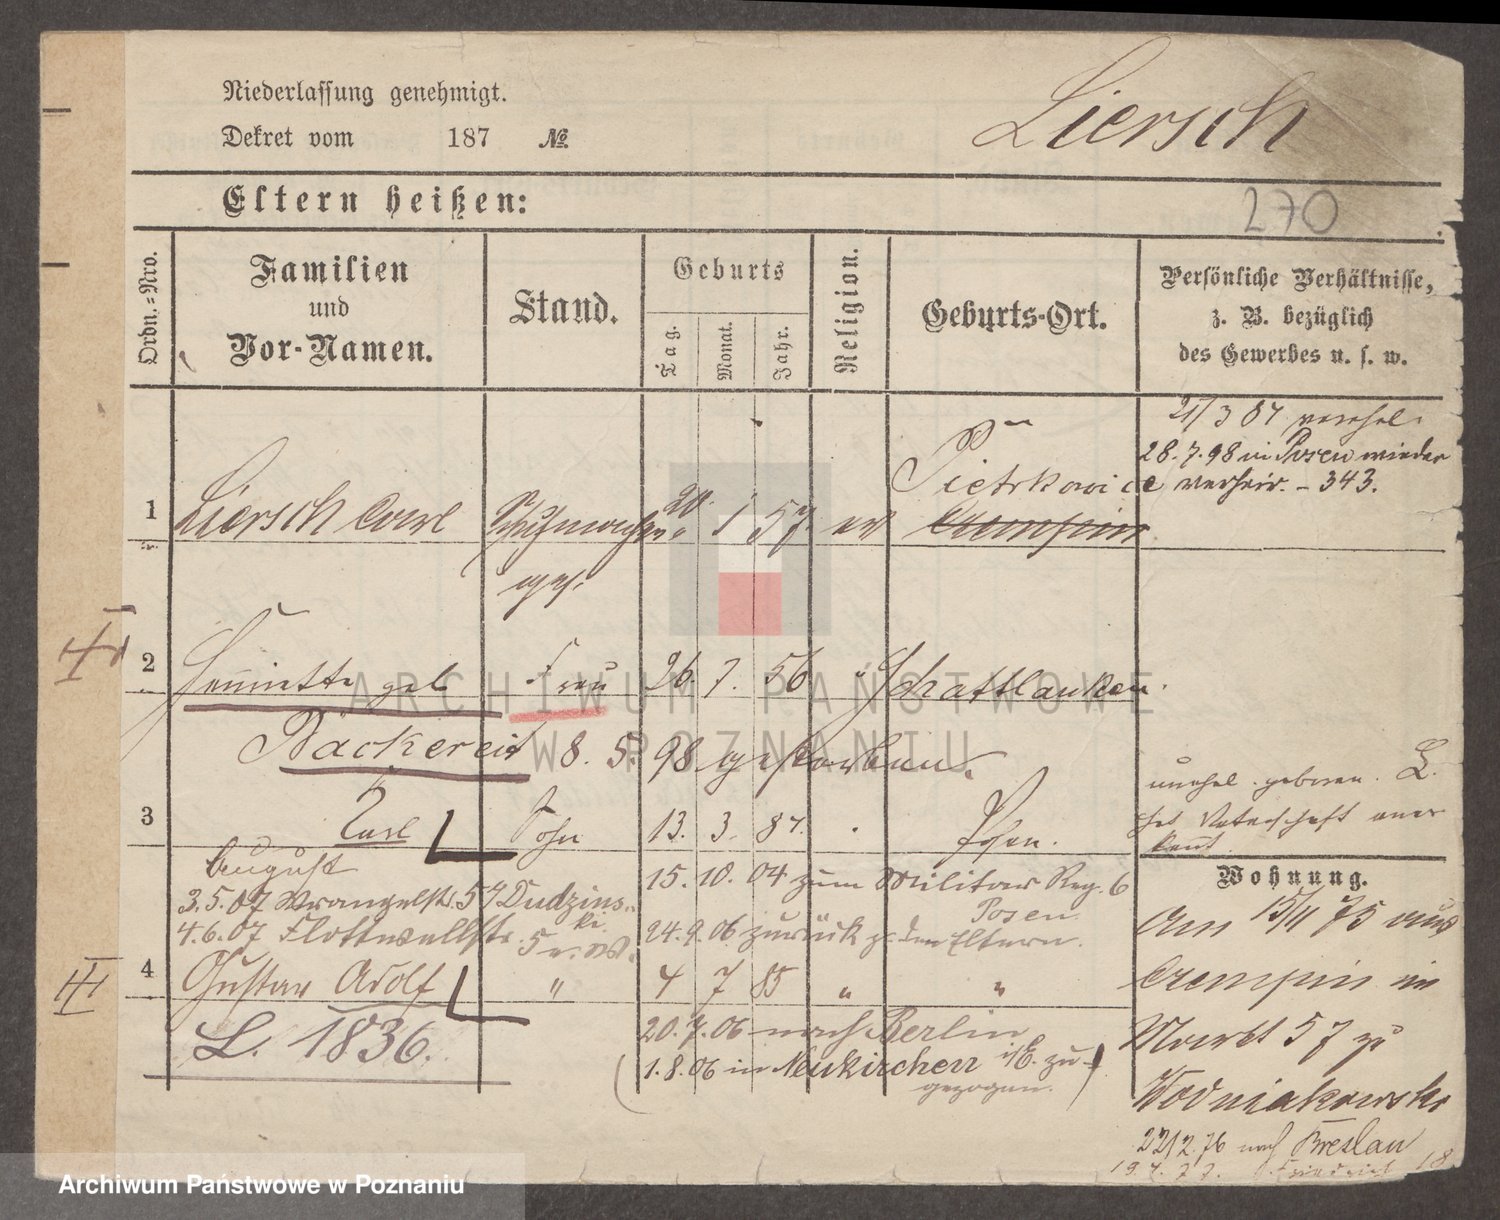 Niederlassung genehmigt.
Dekret vom 187 №
Liersch
Eltern heißen:
270
Ordn.=Nro.
Familien
und
Vor-Namen.
Stand.
Geburts
Tag.
Monat.
Jahr.
Religion.
Geburts-Ort.
Persönliche Verhältnisse,
z. B. bezüglich
des Gewerbes u. s. w.
21/3 87 verehel.
28.7.98 in Posen wieder
verheir. - 343.
1 Liersch Carl 20. 1 57 ev Pietrkowice
Czempin
2 geb Frau 26. 7. 56 Schattlanken
Backereit 8. 5. 98 gestorben.
unehel. geboren. L.
hat Vaterschaft aner
kannt.
3 Karl Sohn 13. 3. 87. Posen.
August
15. 10. 04 zum Militär Reg. 6
Posen
3.5.07 Wrangelstr. 5 Dudzins
ki
4.6.07 Flottwellstr. 5
24.9.06 zurück z. den Eltern.
4 Gustav Adolf " 4 7 85 " "
L. 1836.
20.7.06 nach Berlin
1.8.06 in Neukirchen zu-
gezogen.
Wohnung.
Am 15/11 75 aus
Czempin in
Markt 57 zu
Wodniakowski
22/2.76 nach Breslau
19.4.77.
18
III
III
ARCHIWUM PAŃSTWOWE
W POZNANIU
Archiwum Państwowe w Poznaniu